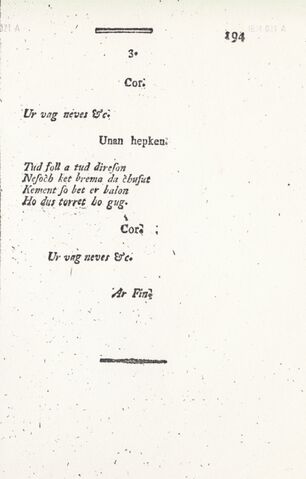 194
3.
Cor.
Ur vag neves &c.
Unan hepken.
Tud foll a tud direſon
Neſoch ket brema da chuſut
Kement ſo bet er baſon
Ho dus torret ho gug.
Cor.
Ur vag neves &c.
Ar Fin.